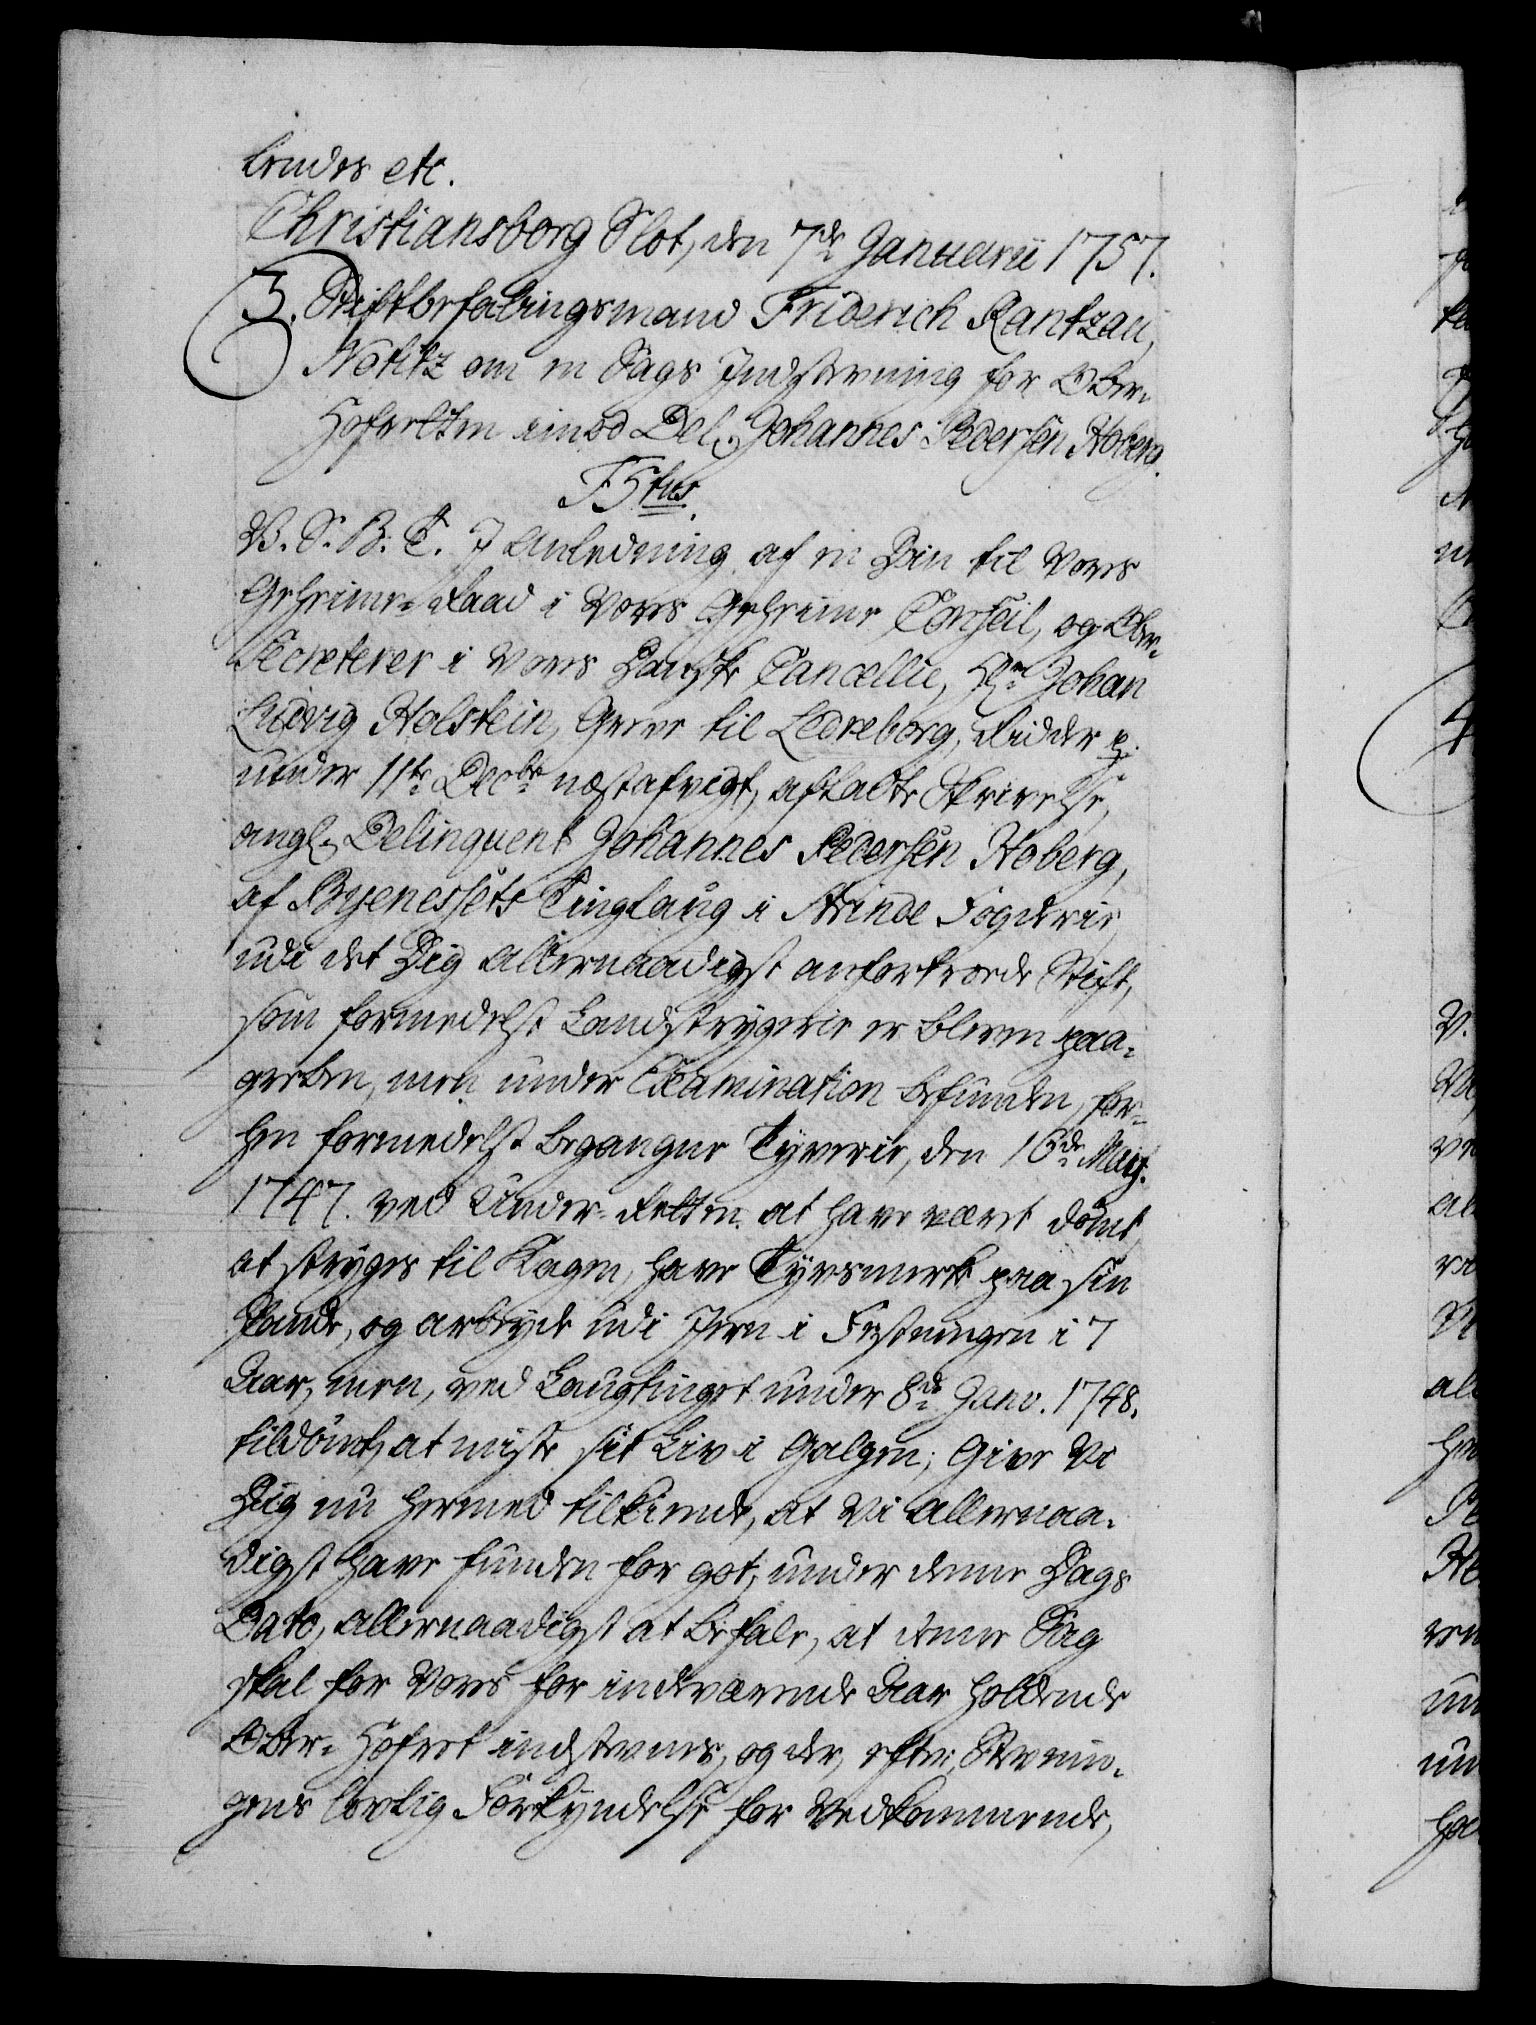 bendes etc.
Christiansborg Slot, den 7de Januarii 1757.
3. Stiftbefalingsmand Friderich Rantzau,
Notitz om en Sags Indstevning for Ober-
Hofretten imod Del. Johannes Pedersen Hoberg.
F 5tus.
V. S. B. T. I Anledning af en Din til Vores
Geheime-Raad i Vores Geheime Conseil, og Ober-
Secreterer i Vores Danske Cancellie, Hr. Johan
Ludvig Holstein, Greve til Ledreborg, Ridder p.
under 11te Decbr. næstafvigt, afladte Skrivelse,
angl. Delinquent Johannes Pedersen Hoberg,
af Byenessets Tinglaug i Strinde Fogderie
udi det Dig allernaadigst anfortroede Stift,
som formedelst Landstrygerie er bleven paa-
greben, men under Examination befunden, for-
hen formedelst begangne Tyverie, den 16de Maij.
1747. ved Under-Retten at have været dømt,
at stryges til Kagen, have Tyvsmerk paa sin
Pande, og arbeyde udi Jern i Festningen i 7
Aar, men, ved Laugtinget under 8de Janv. 1748.
tildømt, at miste sit Liv i Galgen; Give Vi
Dig nu hermed tilkiende, at Vi allernaa-
digst have funden for got, under denne Dags
Dato, allernaadigst at befale, at denne Sag
skal for Vores for indeværende Aar holdende
Ober-Hofret indstevnes, og der, efter Stevnin-
gens lovlig Forkyndelse for Vedkommende,